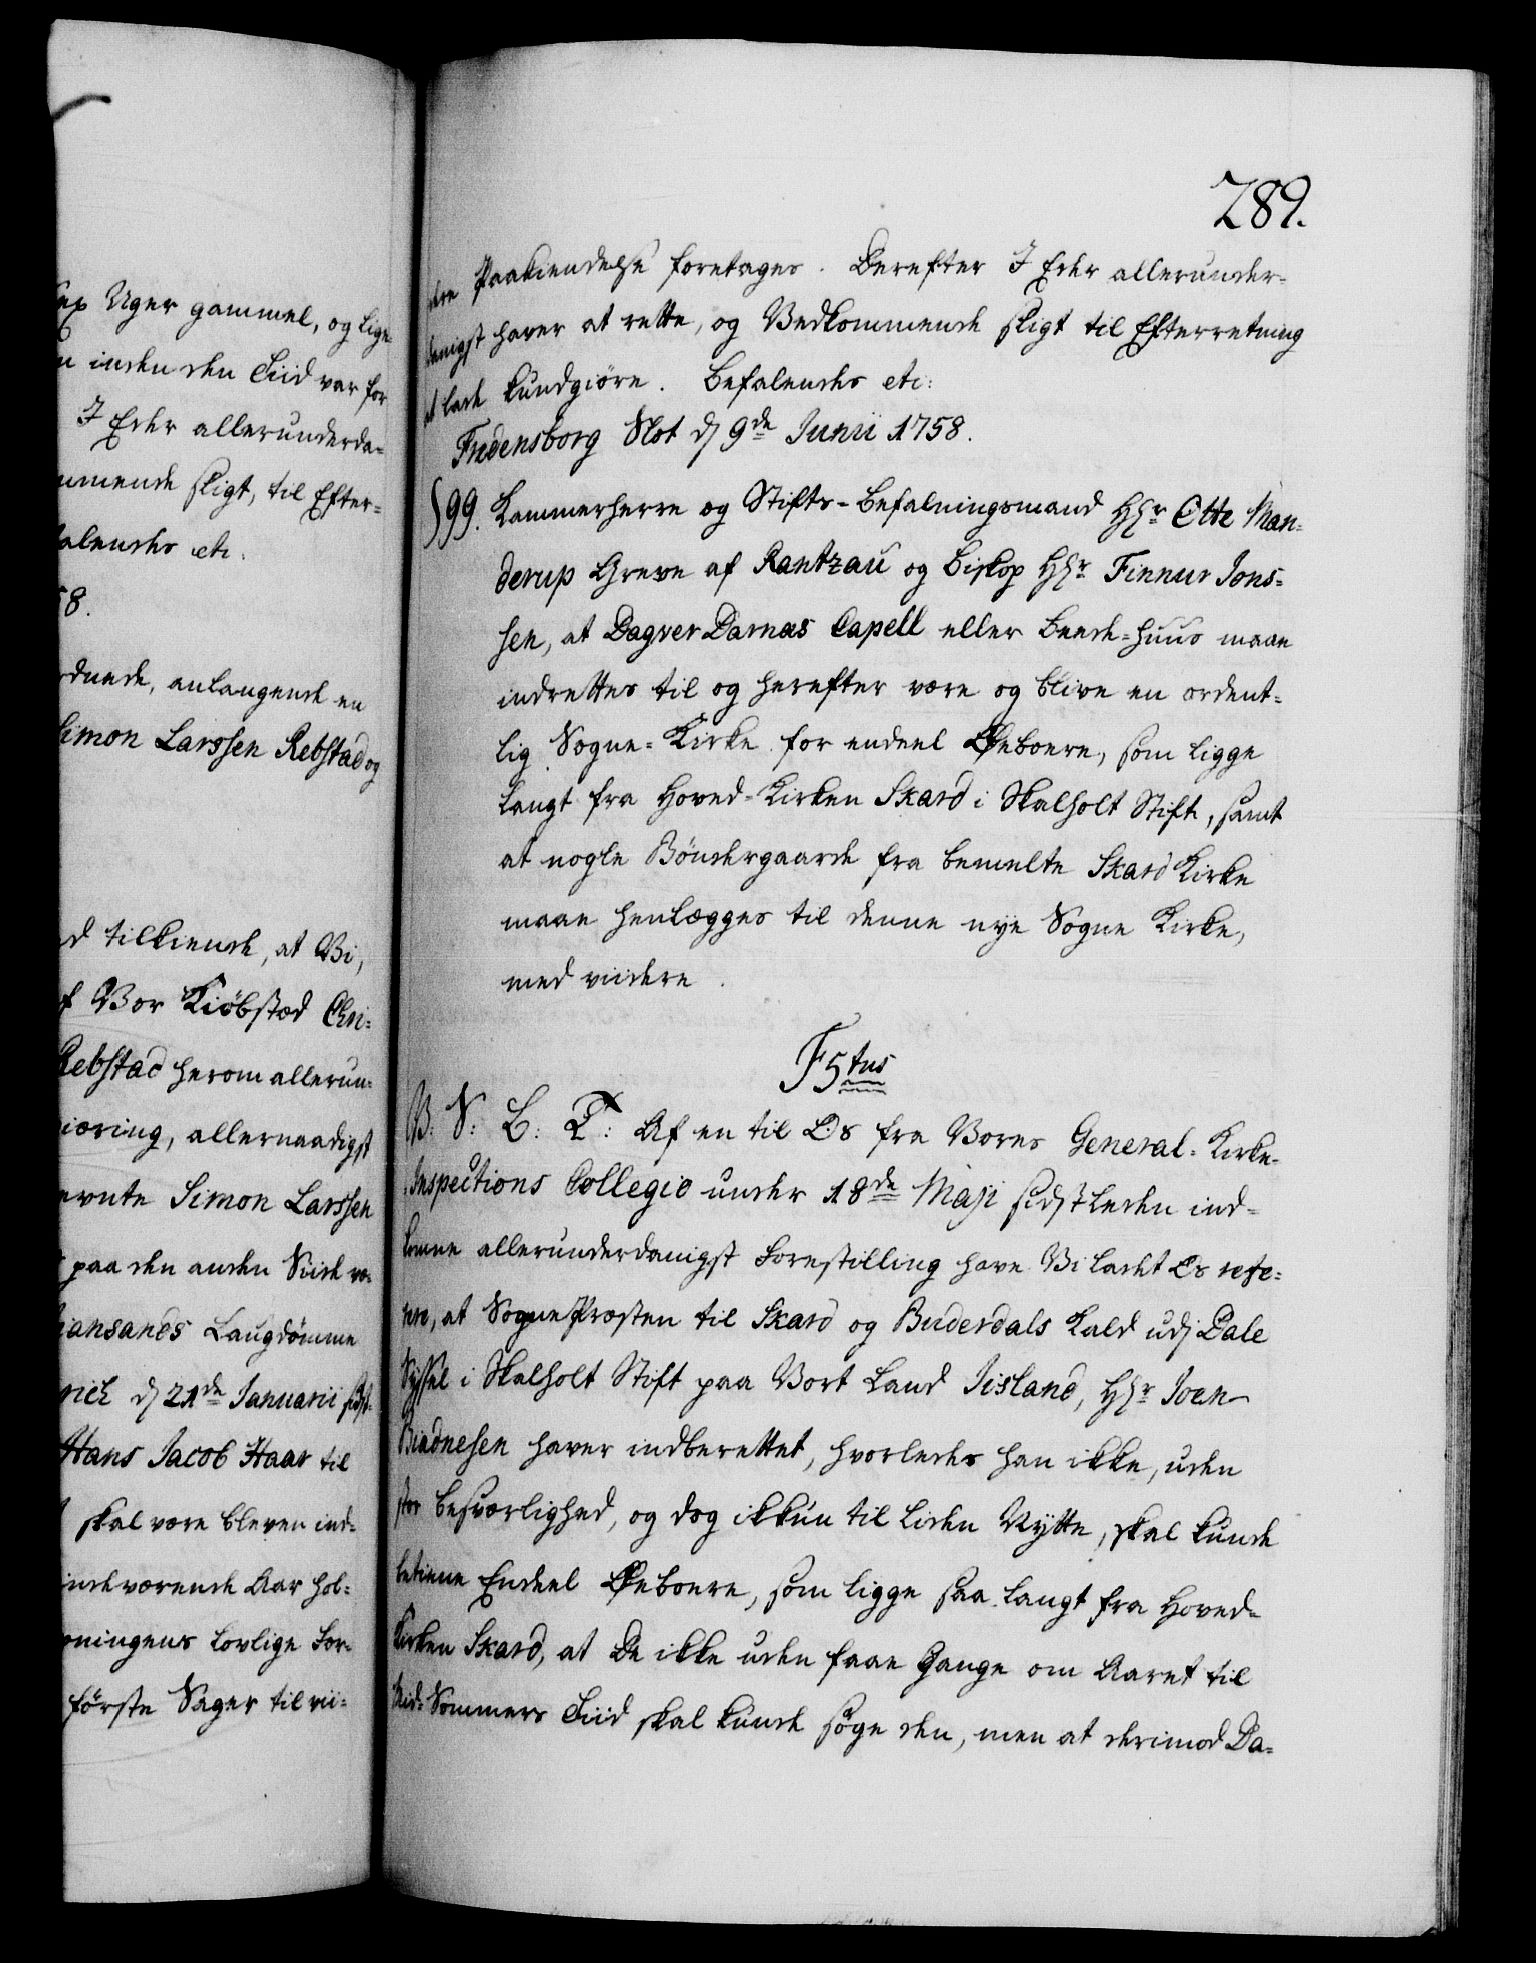 sex Uger gammel, og lige-
inden den Tiid var for
I Eder allerunderda=
mmende sligt, til Efter=
falendes etc.
58.
rdnede, anlangende en
Simon Larssen Rebstad og
d tilkiende, at Vi,
af Vor Kiöbstæd Chri=
Rebstad herom allerun=
giæring, allernaadigst
evnte Simon Larssen
paa den anden Siide væ=
tiansands Laugdømme
d 21de Januarii sidst=
Hans Jacob Haar til
skal være bleven ind=
indeværende Aar hol=
ningens lovlige For=
förste Sager til vii=
289.
dere Paakiendelse foretages. Derefter I Eder allerunder=
danigst haver at rette, og Vedkommende sligt til Efterretning
at lade kundgiöre. Befalendes etc:
Fredensborg Slot d 9de Junii 1758.
§99. Kammerherre og Stifts-Befalningsmand Hr Otte Man=
derup Greve af Rantzau og Biskop Hr Finnur Jons=
sen, at Dagver Darnæs Capell eller Beede-huus maae
indrettes til og herefter være og blive en ordent=
lig Sogne=Kirke for endeel Øeboere, som ligge
langt fra Hoved-Kirken Skard i Skalholt Stift, samt
at nogle Böndergaarde fra bemelte Skard Kirke
maae henlægges til denne nye Sogne Kirke,
med viidere.
F5tus
V: S: G: T: Af en til Os fra Vores General-Kirke-
Inspections Collegio under 18de Maji sidstleden ind=
komne allerunderdanigst Forestilling have Vi ladet Os refe=
rere, at Sogne Præsten til Skard og Buderdals Kald udj Dale
Syssel i Skalholt Stift paa Vort Land Iisland, Hr Joen
Biadnesen haver indberettet, hvorledes han ikke, uden
stor besværlighed, og dog ikkun til liden Nytte, skal kunde
betiene Endeel Øeboere, som ligge saa langt fra Hoved-
Kirken Skard, at De ikke uden faae Gange om Aaret til
Mid-Sommers Tiid skal kunde søge den, men at derimod Da=